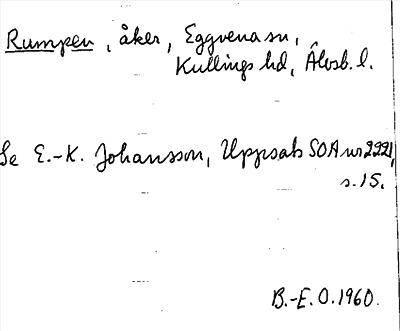 Rumpen, åker, Eggvena sn,
Kullings hd, Älvsb. l.
Se E.-K. Johansson, Uppsats SOA nr 2221,
s. 15.
B.-E. O. 1960.